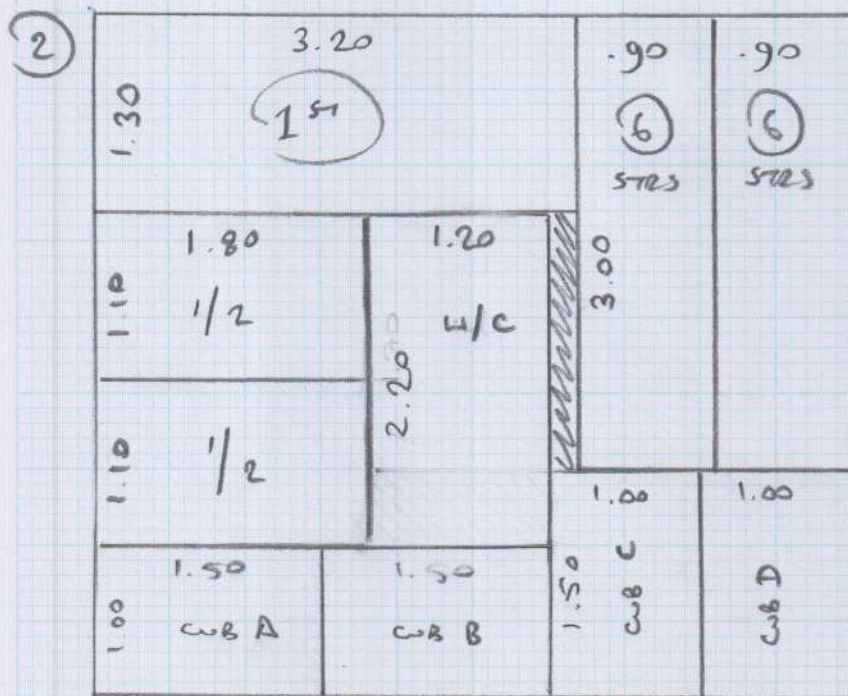 2
3.20
1.30
1ST
.90
6
STRS
.90
6
STRS
1.80
1.10
1/2
1.20
E/C
2.20
3.00
1.10
1/2
1.50
1.00
CUB A
1.50
CUB B
1.00
1.50
CUB C
1.00
CUB D